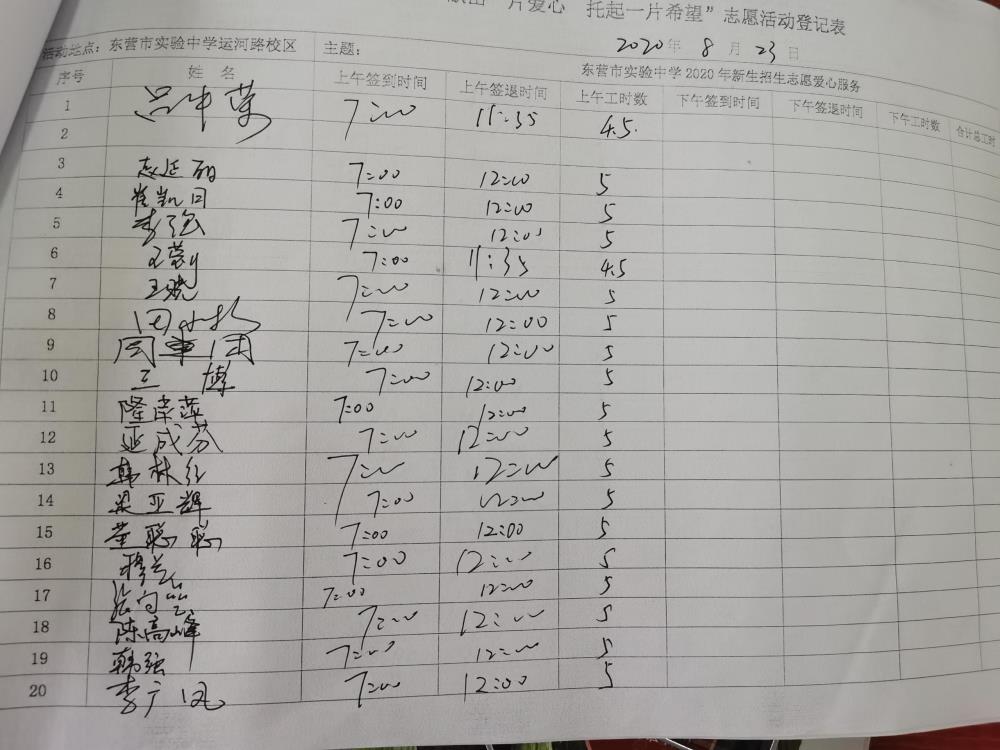 片爱心 托起一片希望”志愿活动登记表
2020年 8月 23日
活动地点：东营市实验中学运河路校区 主题： 东营市实验中学2020年新生招生志愿爱心服务
序号 姓 名 上午签到时间 上午签退时间 上午工时数 下午签到时间 下午签退时间 下午工时数 合计总工时
1 7:00 11:35 4.5
2
3 7:00 12:00 5
4 崔凯同 7:00 12:00 5
5 李强 7:00 12:00 5
6 7:00 11:35 4.5
7 王晓 7:00 12:00 5
8 7:00 12:00 5
9 7:00 12:00 5
10 王博 7:00 12:00 5
11 隆岸萍 7:00 12:00 5
12 延成芬 7:00 12:00 5
13 韩林红 7:00 12:00 5
14 梁亚辉 7:00 12:00 5
15 董聪聪 7:00 12:00 5
16 穆兰 7:00 12:00 5
17 7:00 12:00 5
18 陈高峰 7:00 12:00 5
19 韩强 7:00 12:00 5
20 李广凤 7:00 12:00 5